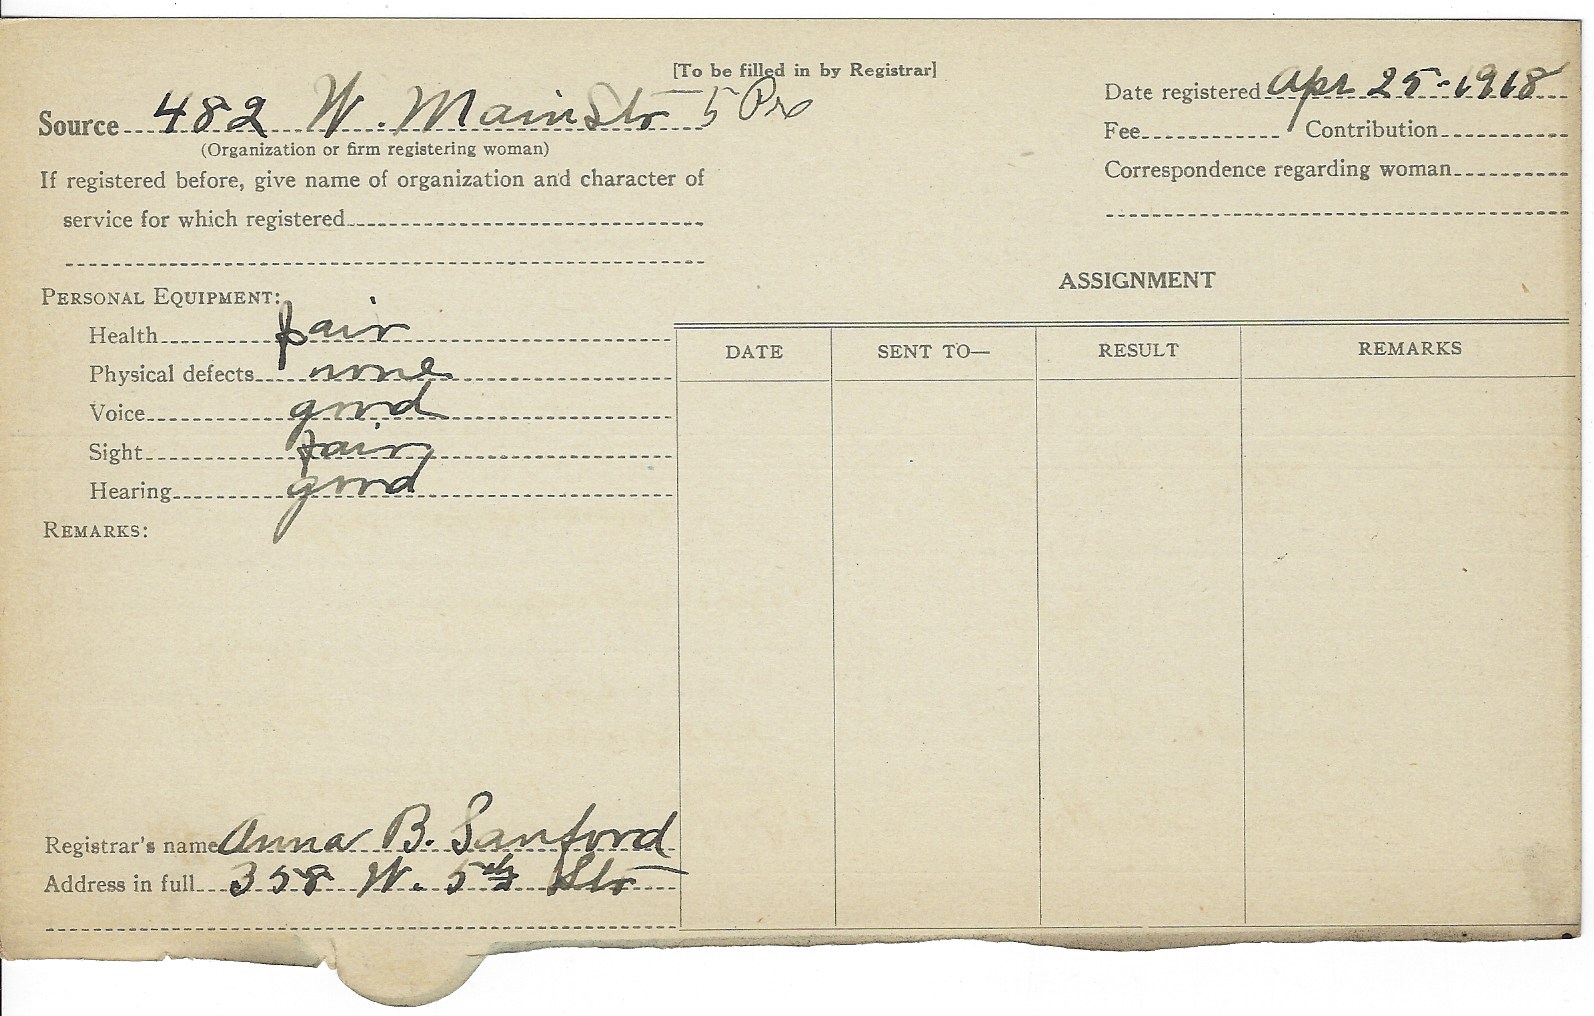 [To be filled in by Registrar]
Source 482 W. Main Str 5 Pre
(Organization or firm registering woman)
If registered before, give name of organization and character of
service for which registered
Date registered Apr 25-1918
Fee Contribution
Correspondence regarding woman
PERSONAL EQUIPMENT:
Health fair
Physical defects none
Voice good
Sight fair
Hearing good
REMARKS:
Registrar's name Anna B. Sanford
Address in full 358 W. 5th Str
ASSIGNMENT
DATE SENT TO— RESULT REMARKS